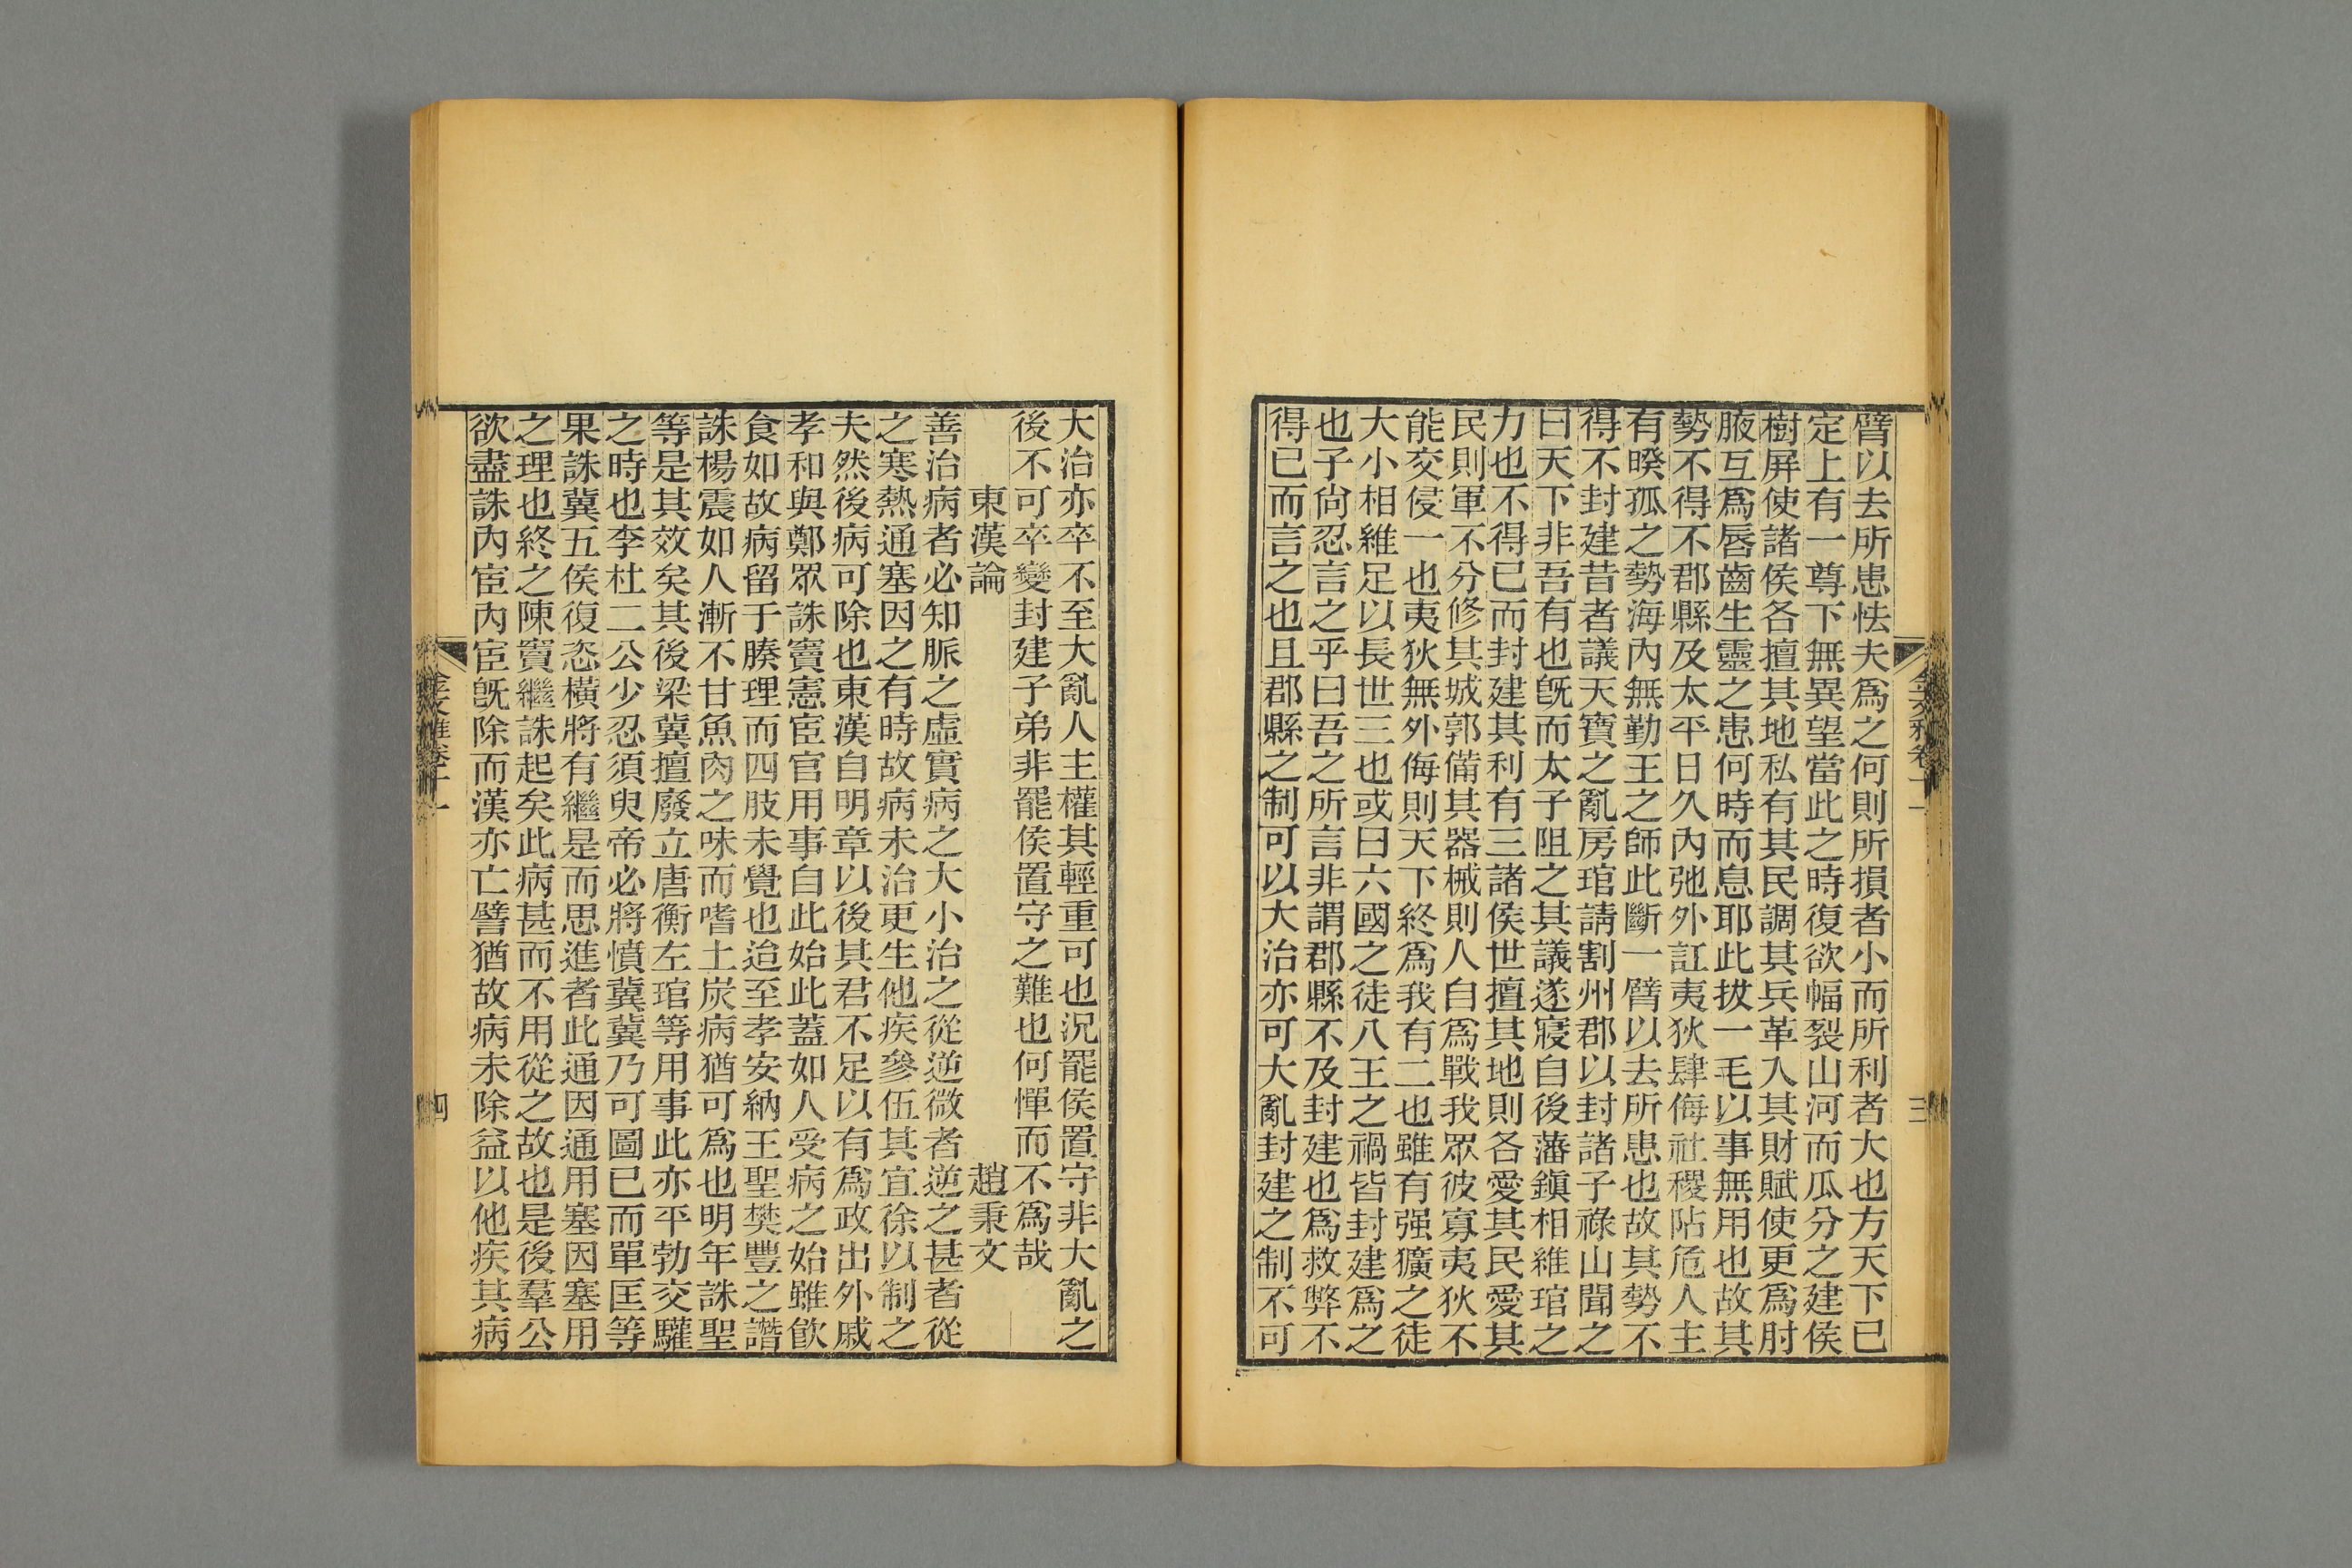 臂以去所患怯夫爲之何則所損者小而所利者大也方天下已
定上有一尊下無異望當此之時復欲幅裂山河而瓜分之建侯
樹屏使諸侯各擅其地私有其民調其兵革入其財賦使更爲肘
腋互爲唇齒生靈之患何時而息耶此拔一毛以事無用也故其
勢不得不郡縣及太平日久內弛外訌夷狄肆侮社稷阽危人主
有暌孤之勢海內無勤王之師此斷一臂以去所患也故其勢不
得不封建昔者議天寶之亂房琯請割州郡以封諸子祿山聞之
曰天下非吾有也旣而太子阻之其議遂寢自後藩鎭相維琯之
力也不得已而封建其利有三諸侯世擅其地則各愛其民愛其
民則軍不分修其城郭備其器械則人自爲戰我眾彼寡夷狄不
能交侵一也夷狄無外侮則天下終爲我有二也雖有强獷之徒
大小相維足以長世三也或曰六國之徒八王之禍皆封建爲之
也子尙忍言之乎曰吾之所言非謂郡縣不及封建也爲救弊不
得已而言之也且郡縣之制可以大治亦可大亂封建之制不可
三
大治亦卒不至大亂人主權其輕重可也況罷侯置守非大亂之
後不可卒變封建子弟非罷侯置守之難也何憚而不爲哉
東漢論 趙秉文
善治病者必知脈之虛實病之大小治之從逆微者逆之甚者從
之寒熱通塞因之有時故病未治更生他疾參伍其宜徐以制之
夫然後病可除也東漢自明章以後其君不足以有爲政出外戚
孝和與鄭眾誅竇憲宦官用事自此始此蓋如人受病之始雖飮
食如故病留于腠理而四肢未覺也迨至孝安納王聖樊豐之譖
誅楊震如人漸不甘魚肉之味而嗜土炭病猶可爲也明年誅聖
等是其效矣其後梁冀擅廢立唐衡左琯等用事此亦平勃交驩
之時也李杜二公少忍須臾帝必將憤冀冀乃可圖已而單匡等
果誅冀五侯復恣橫將有繼是而思進者此通因通用塞因塞用
之理也終之陳竇繼誅起矣此病甚而不用從之故也是後羣公
欲盡誅內宦內宦旣除而漢亦亡譬猶故病未除益以他疾其病
金文雅卷十一
四